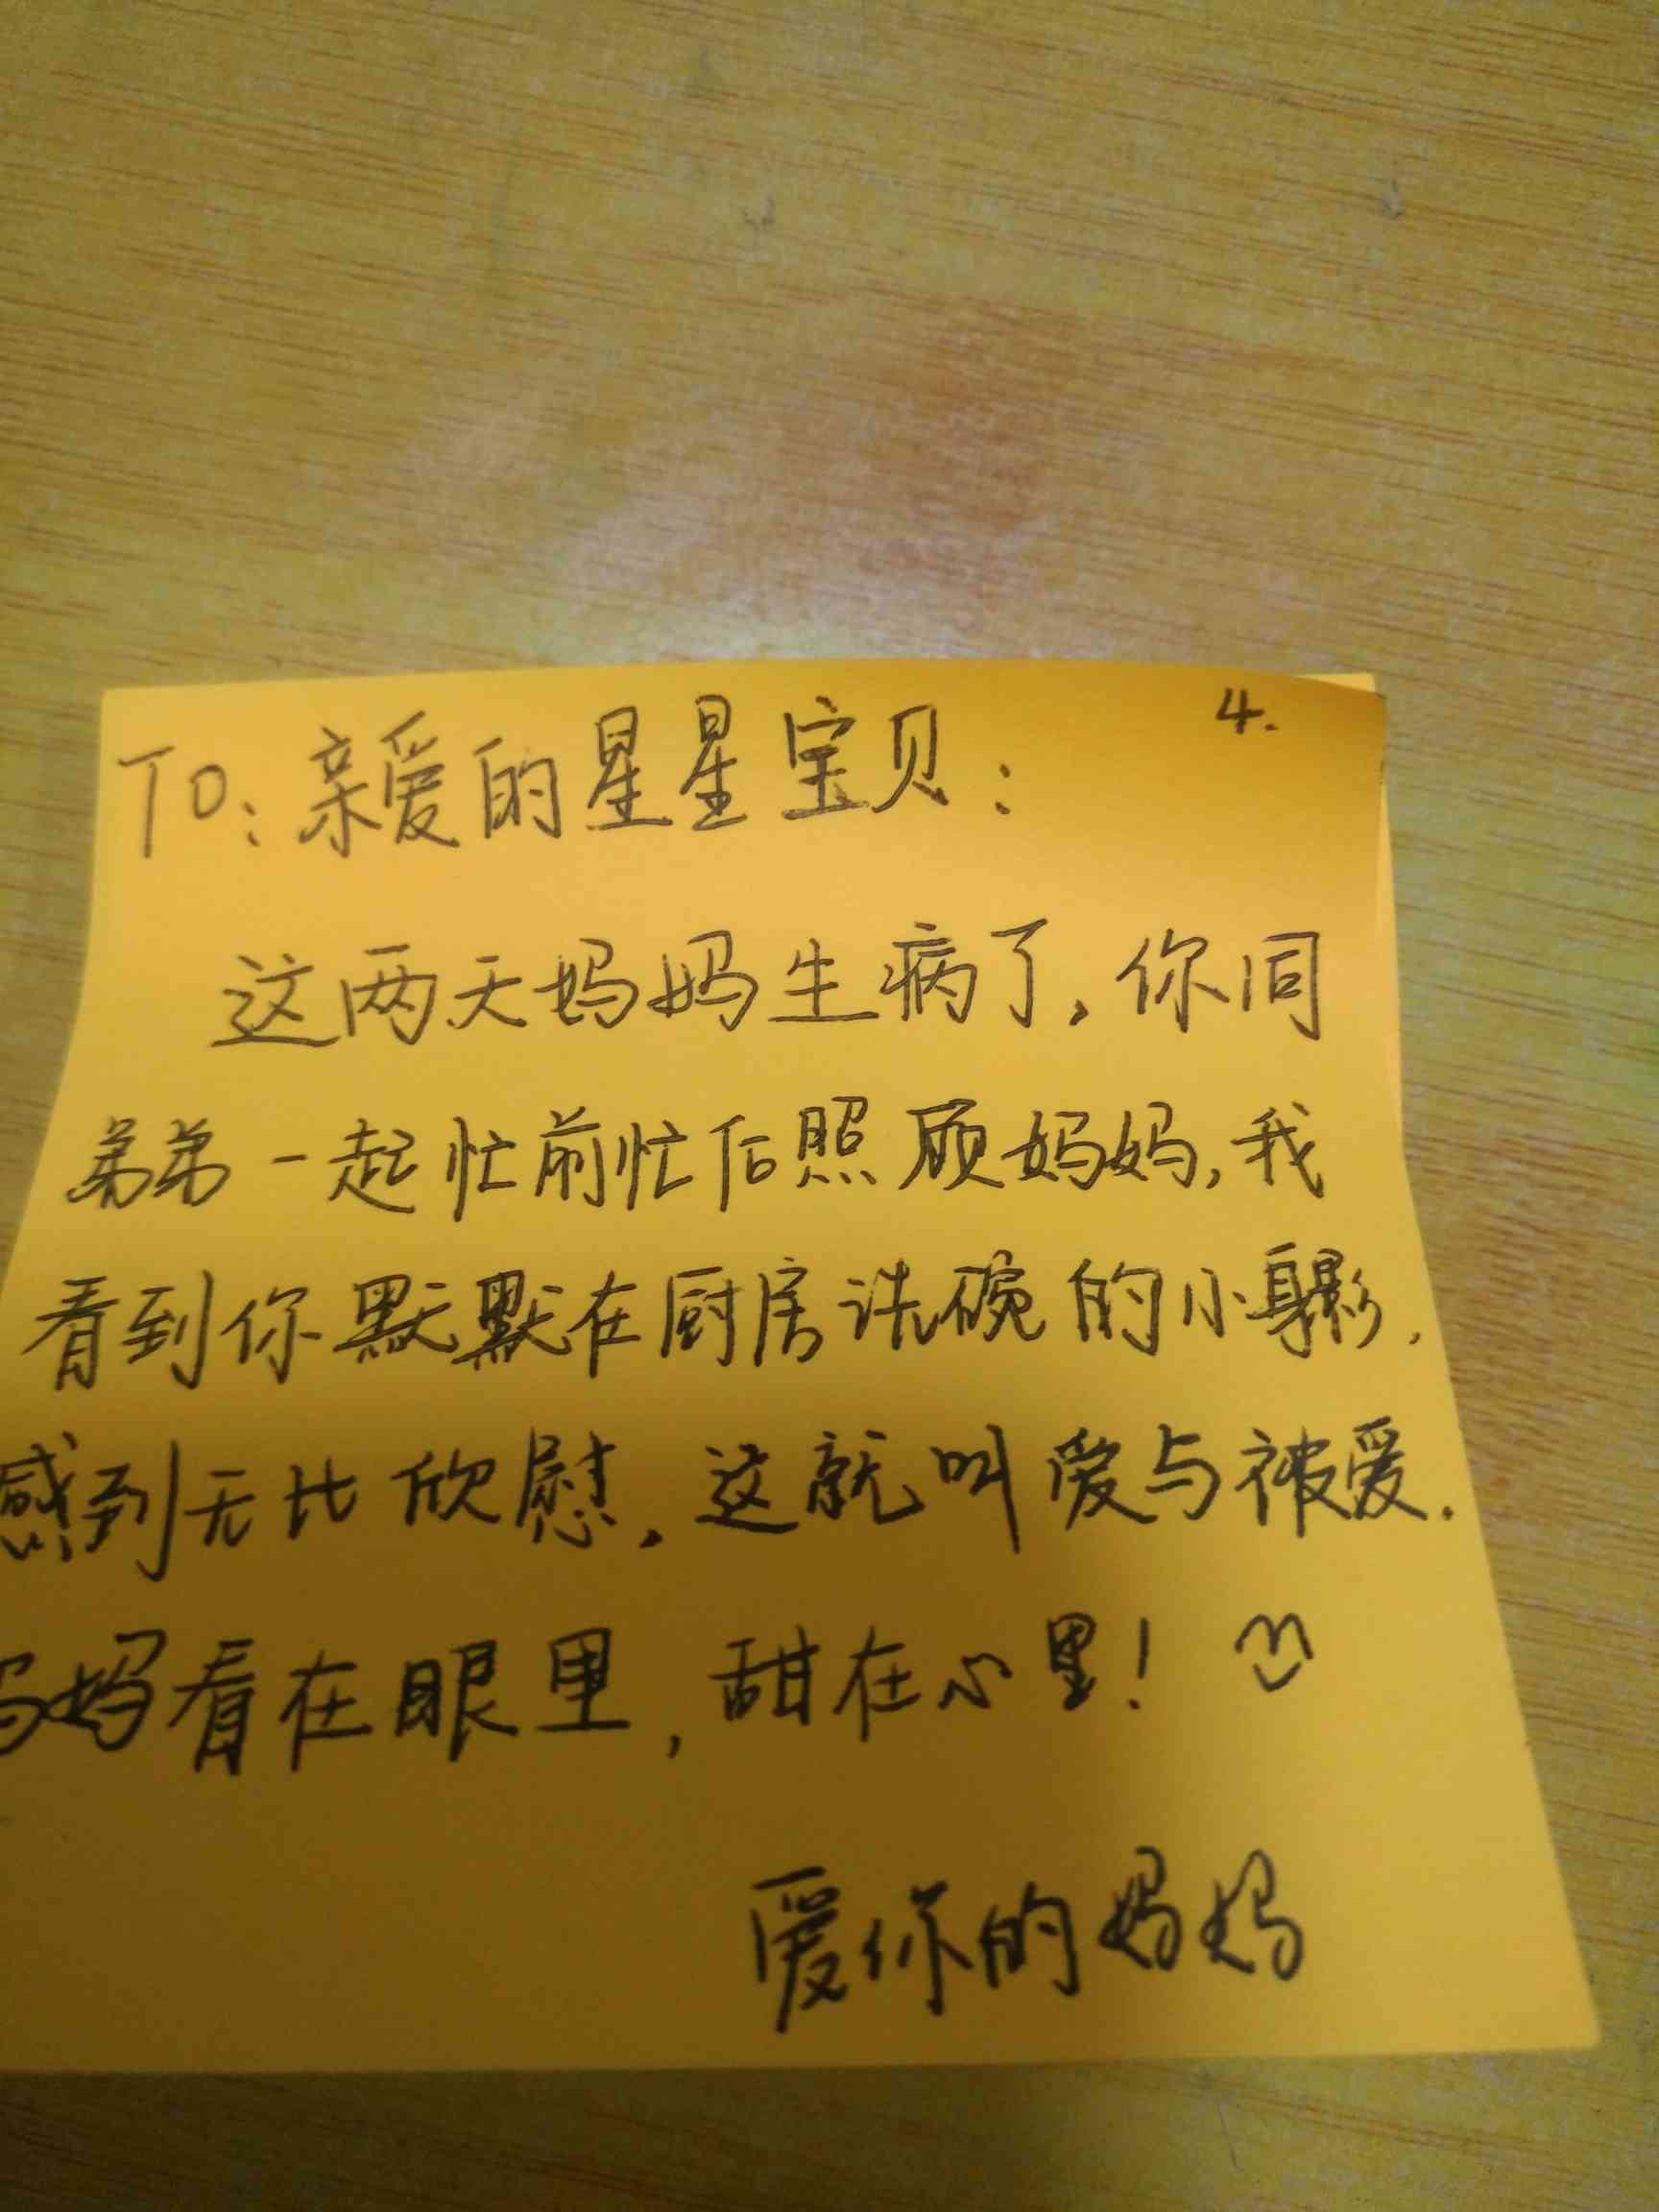 4.
To：亲爱的星星宝贝：
这两天妈妈生病了，你同
弟弟一起忙前忙后照顾妈妈，我
看到你默默在厨房洗碗的小身影，
感到无比欣慰，这就叫爱与被爱．
妈妈看在眼里，甜在心里！
爱你的妈妈